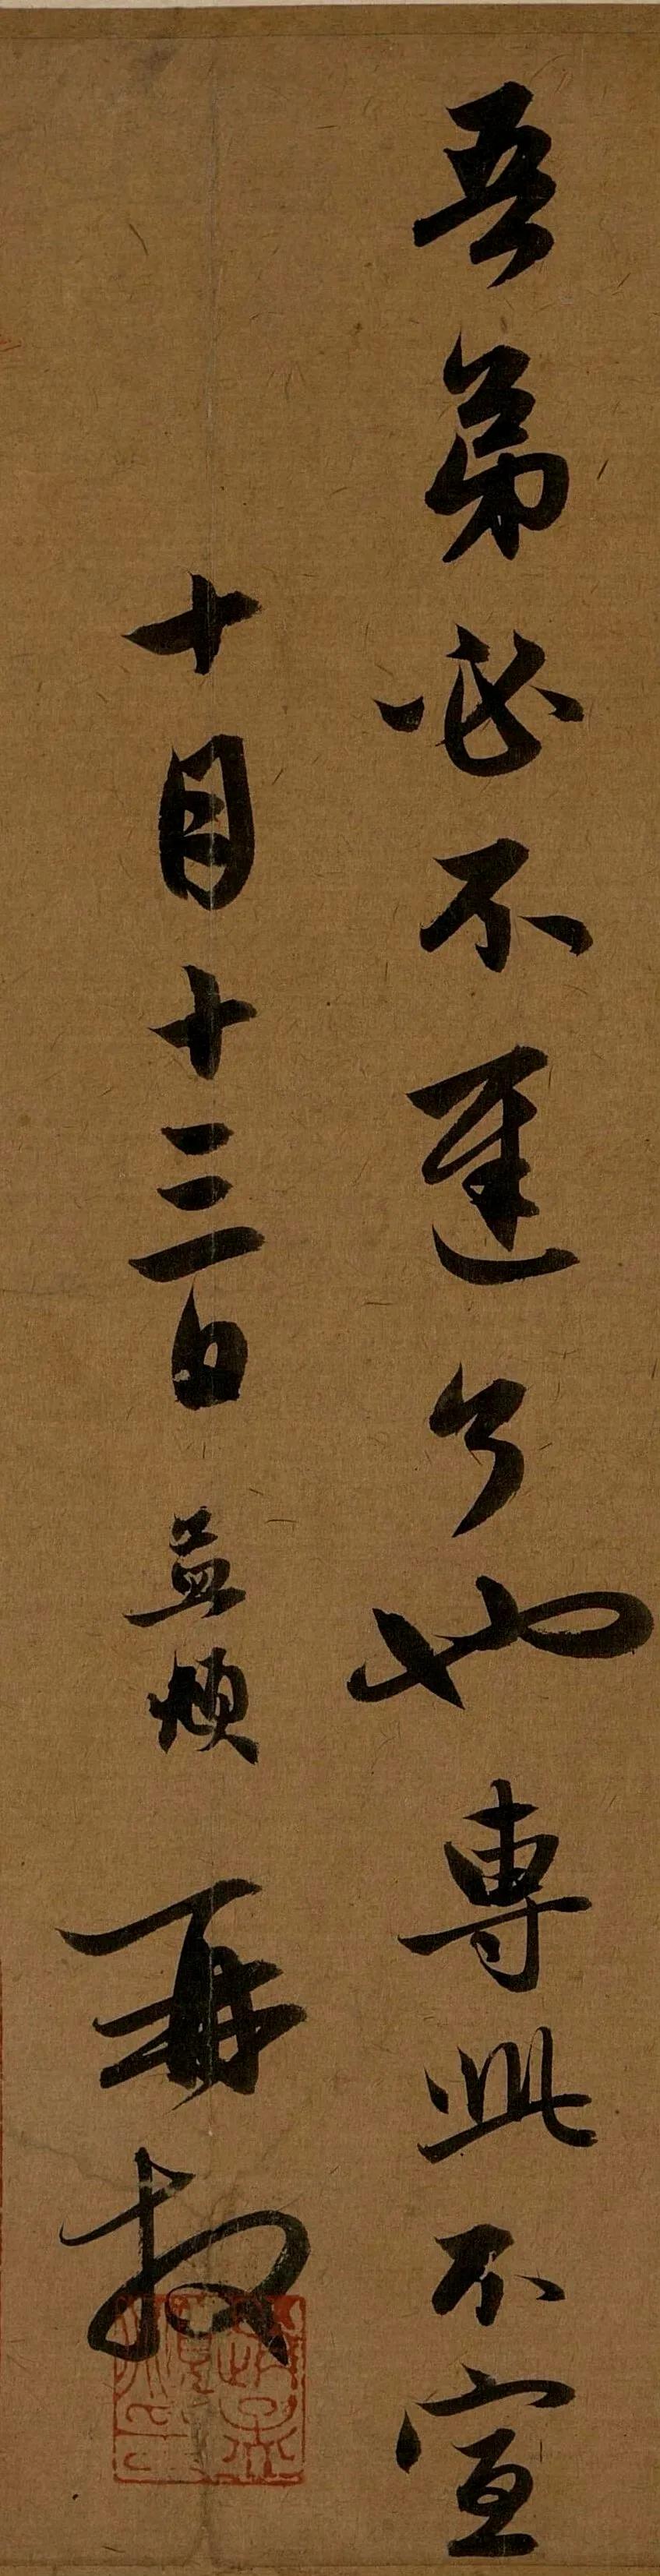 吾弟必不遲了也專此不宣
十月十三日孟頫再拜
趙氏子昂